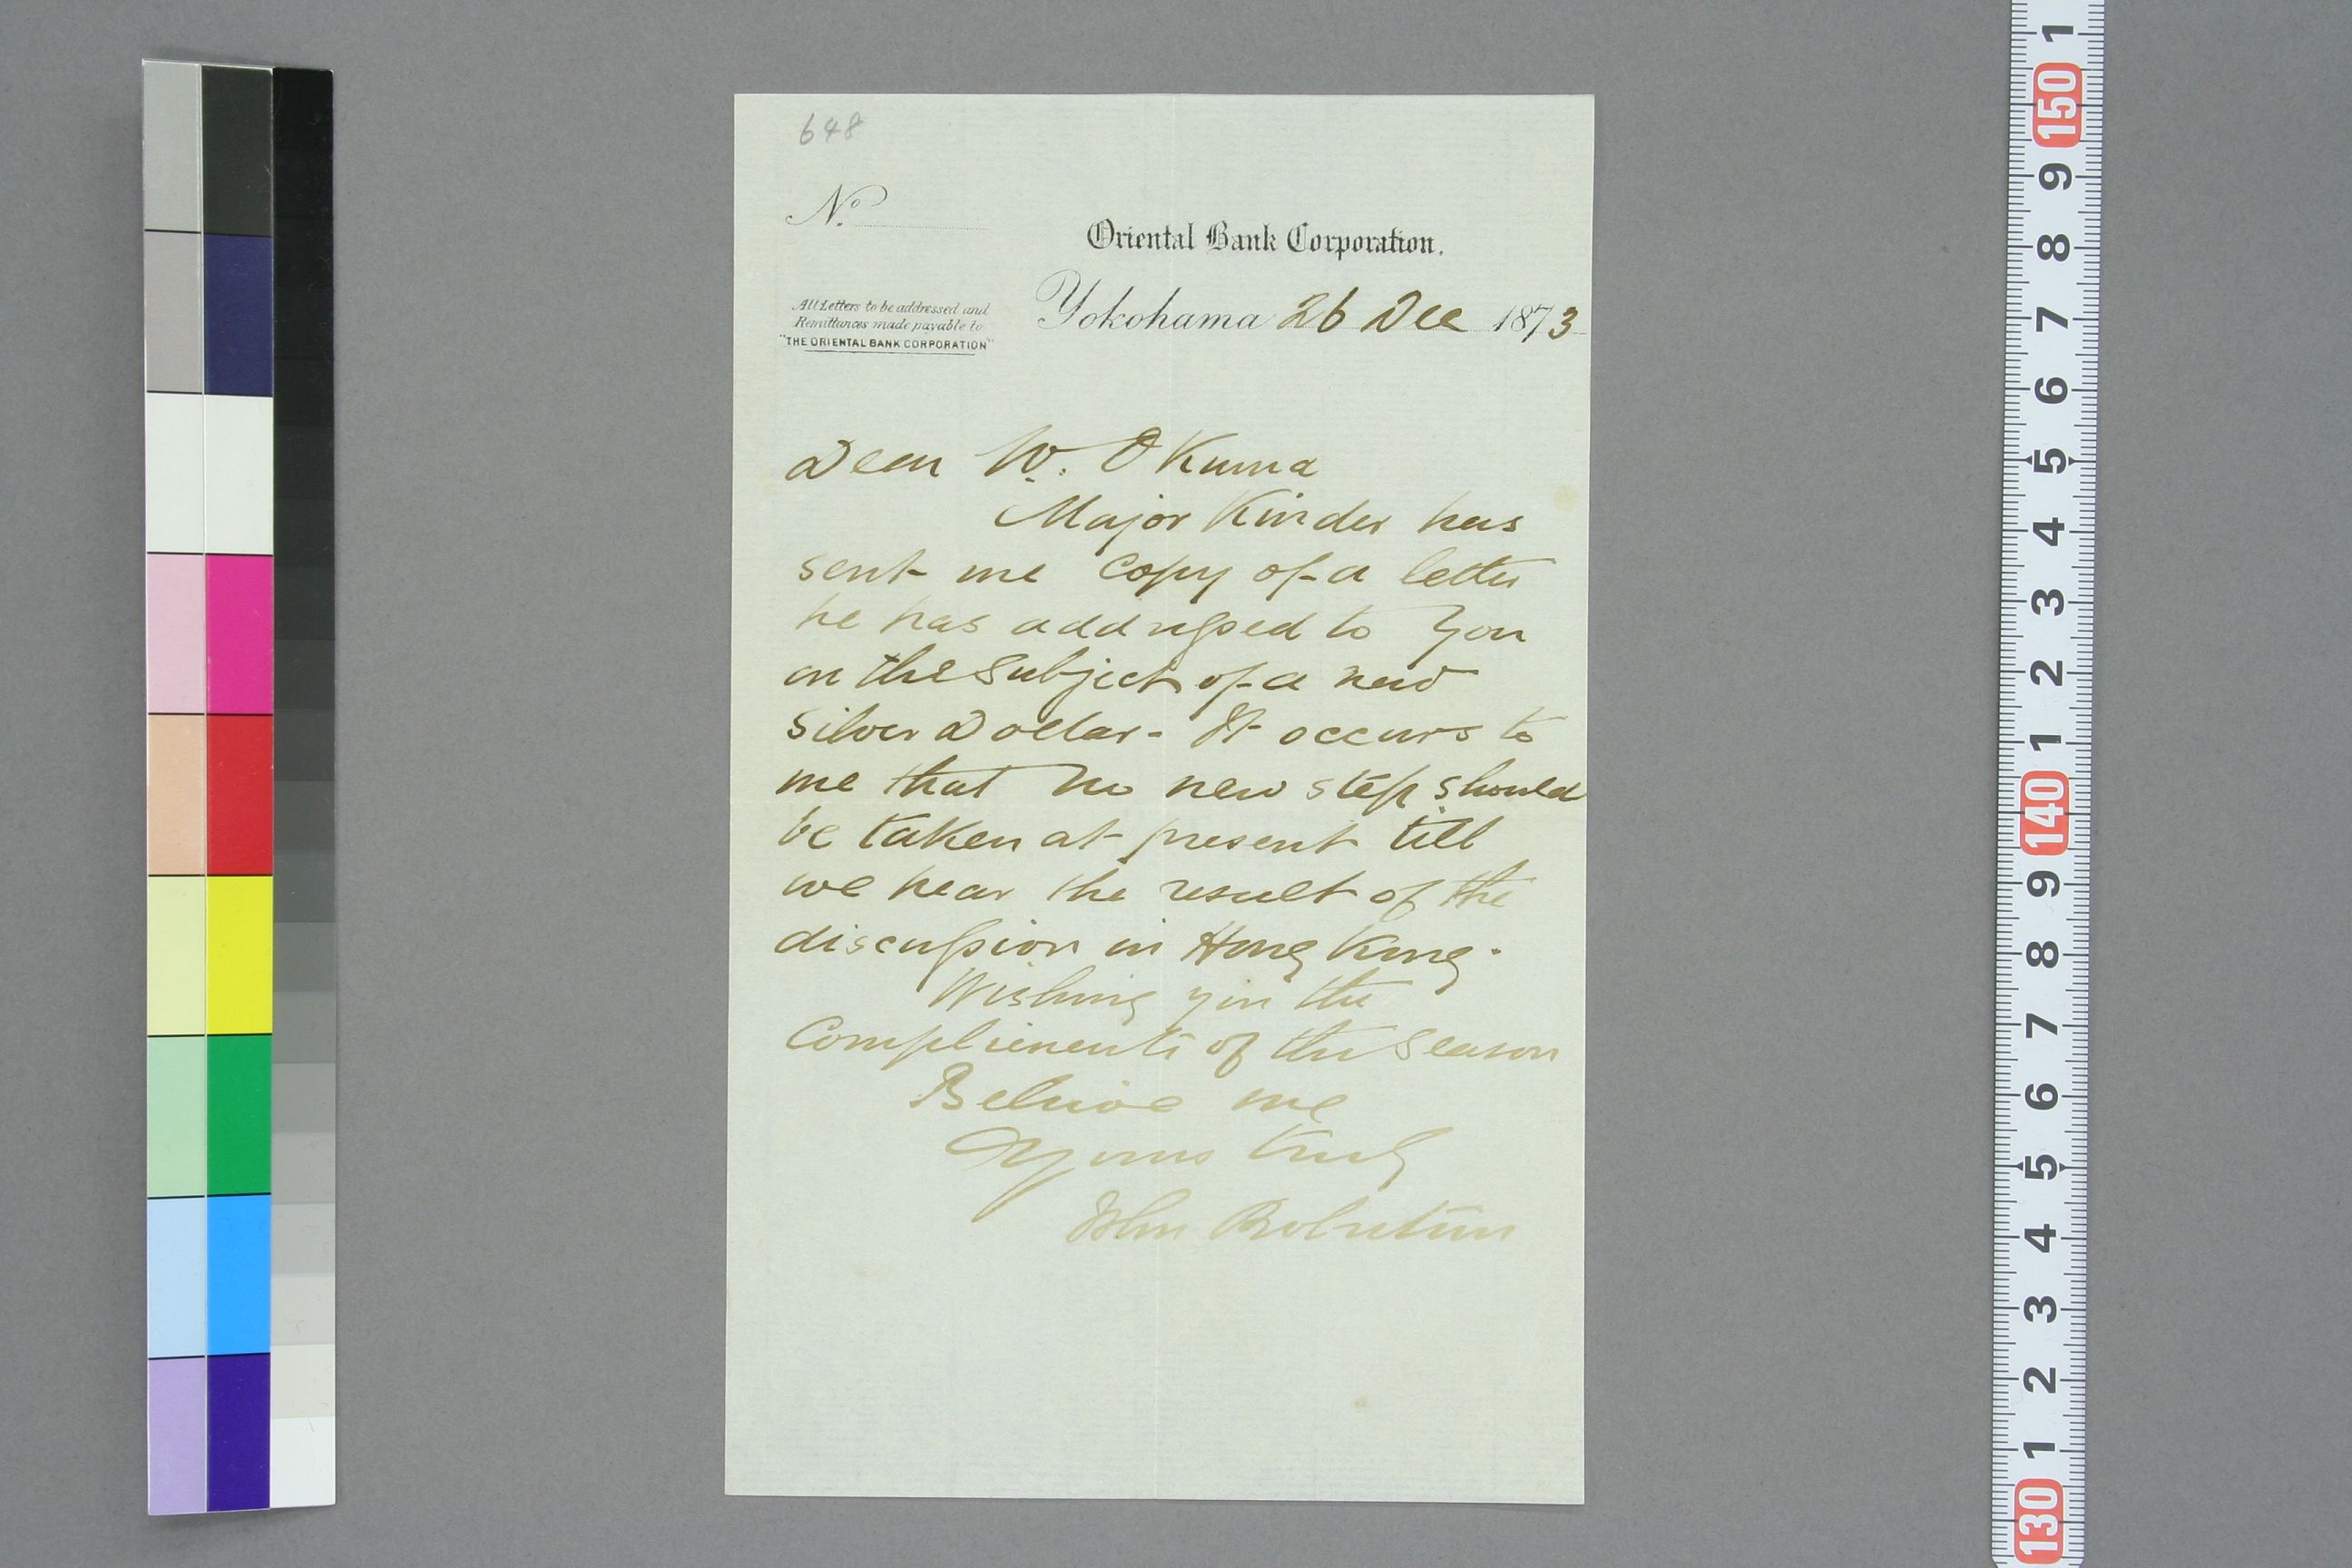 648
No.
Oriental Bank Corporation.
All Letters to be addressed and
Remittances made payable to
"THE ORIENTAL BANK CORPORATION"
Yokohama 26 Dec 1873
Dear Mr. OKuma
Major Kinder has
sent me Copy of a letter
he has addressed to You
on the Subject of a new
Silver Dollar - It occurs to
me that no new step should
be taken at present till
we hear the result of the
discussion in Hong Kong.
Wishing you the
Compliments of the Season
Believe me
Yours truly
John Robertson
1
150
9
8
7
6
5
4
3
2
1
140
9
8
7
6
5
4
3
2
1
130